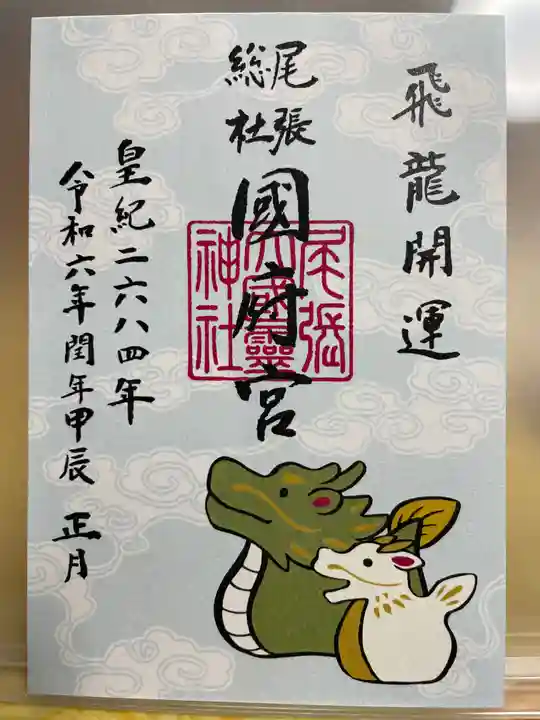 飛龍開運
尾張
総社
國府宮
尾張
大國靈
神社
皇紀二六八四年
令和六年閏年甲辰 正月